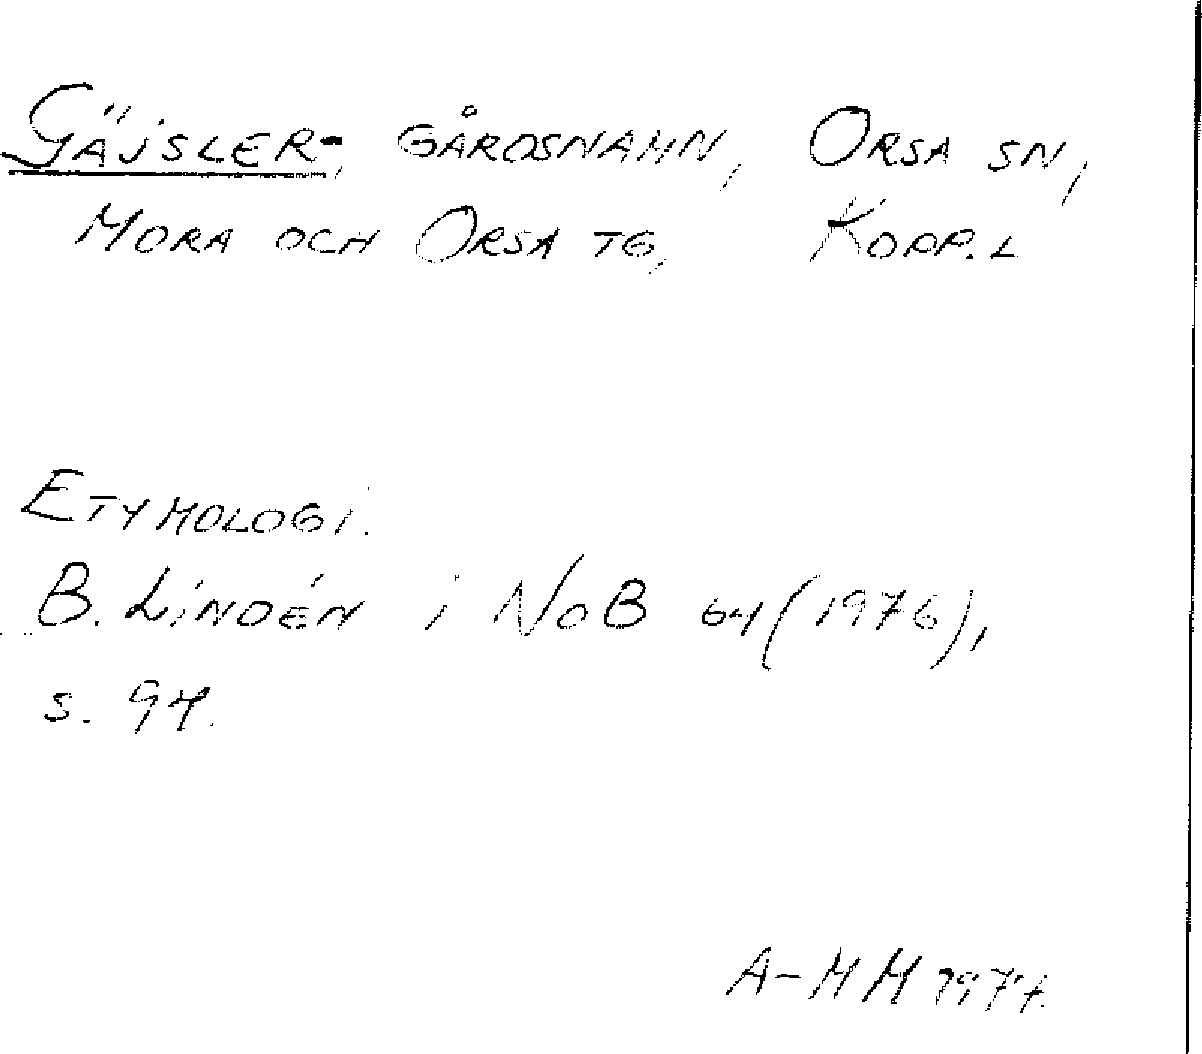 Gäjsler-, gårdsnamn, Orsa sn,
Mora och Orsa tg, Kopp.l
Etymologi.
B. Lindén i NoB 64 (1976),
s. 94.
A-MM